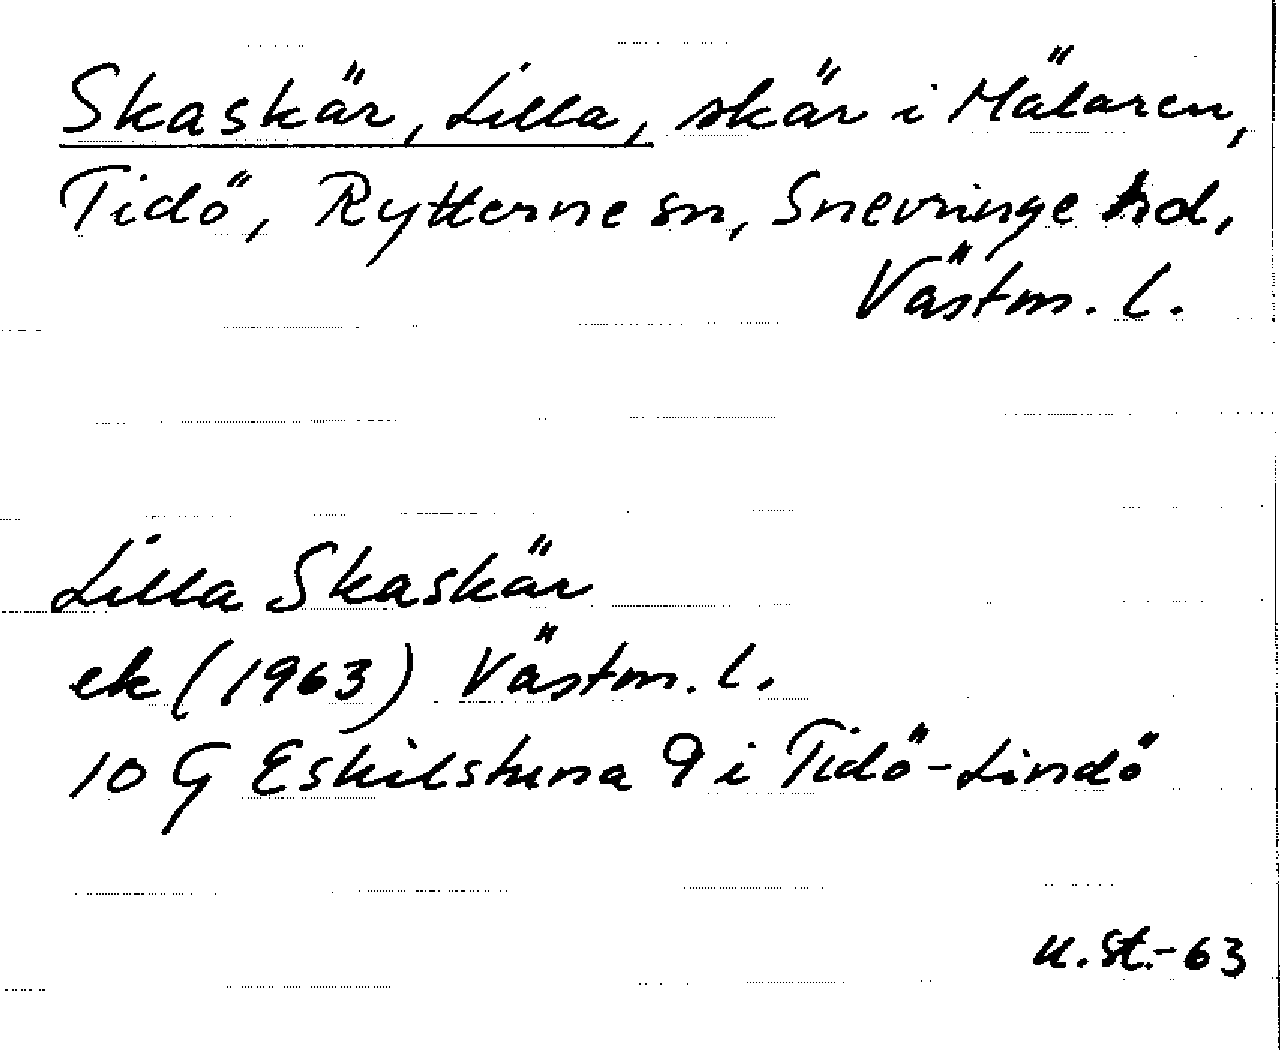 Skaskär, Lilla, skär i Mälaren,
Tidö, Rytterne sn, Snevringe hd,
Västm. l.
Lilla Skaskär
ek (1963) Västm. l.
10 G Eskilstuna 9 i Tidö-Lindö
u.St.-63